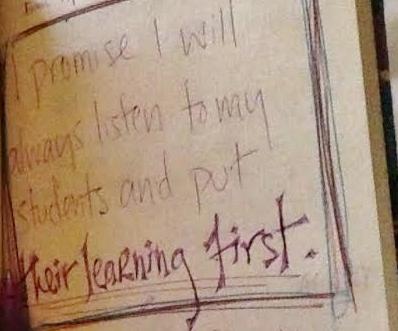 I promise I will
always listen to my
students and put
their learning first.